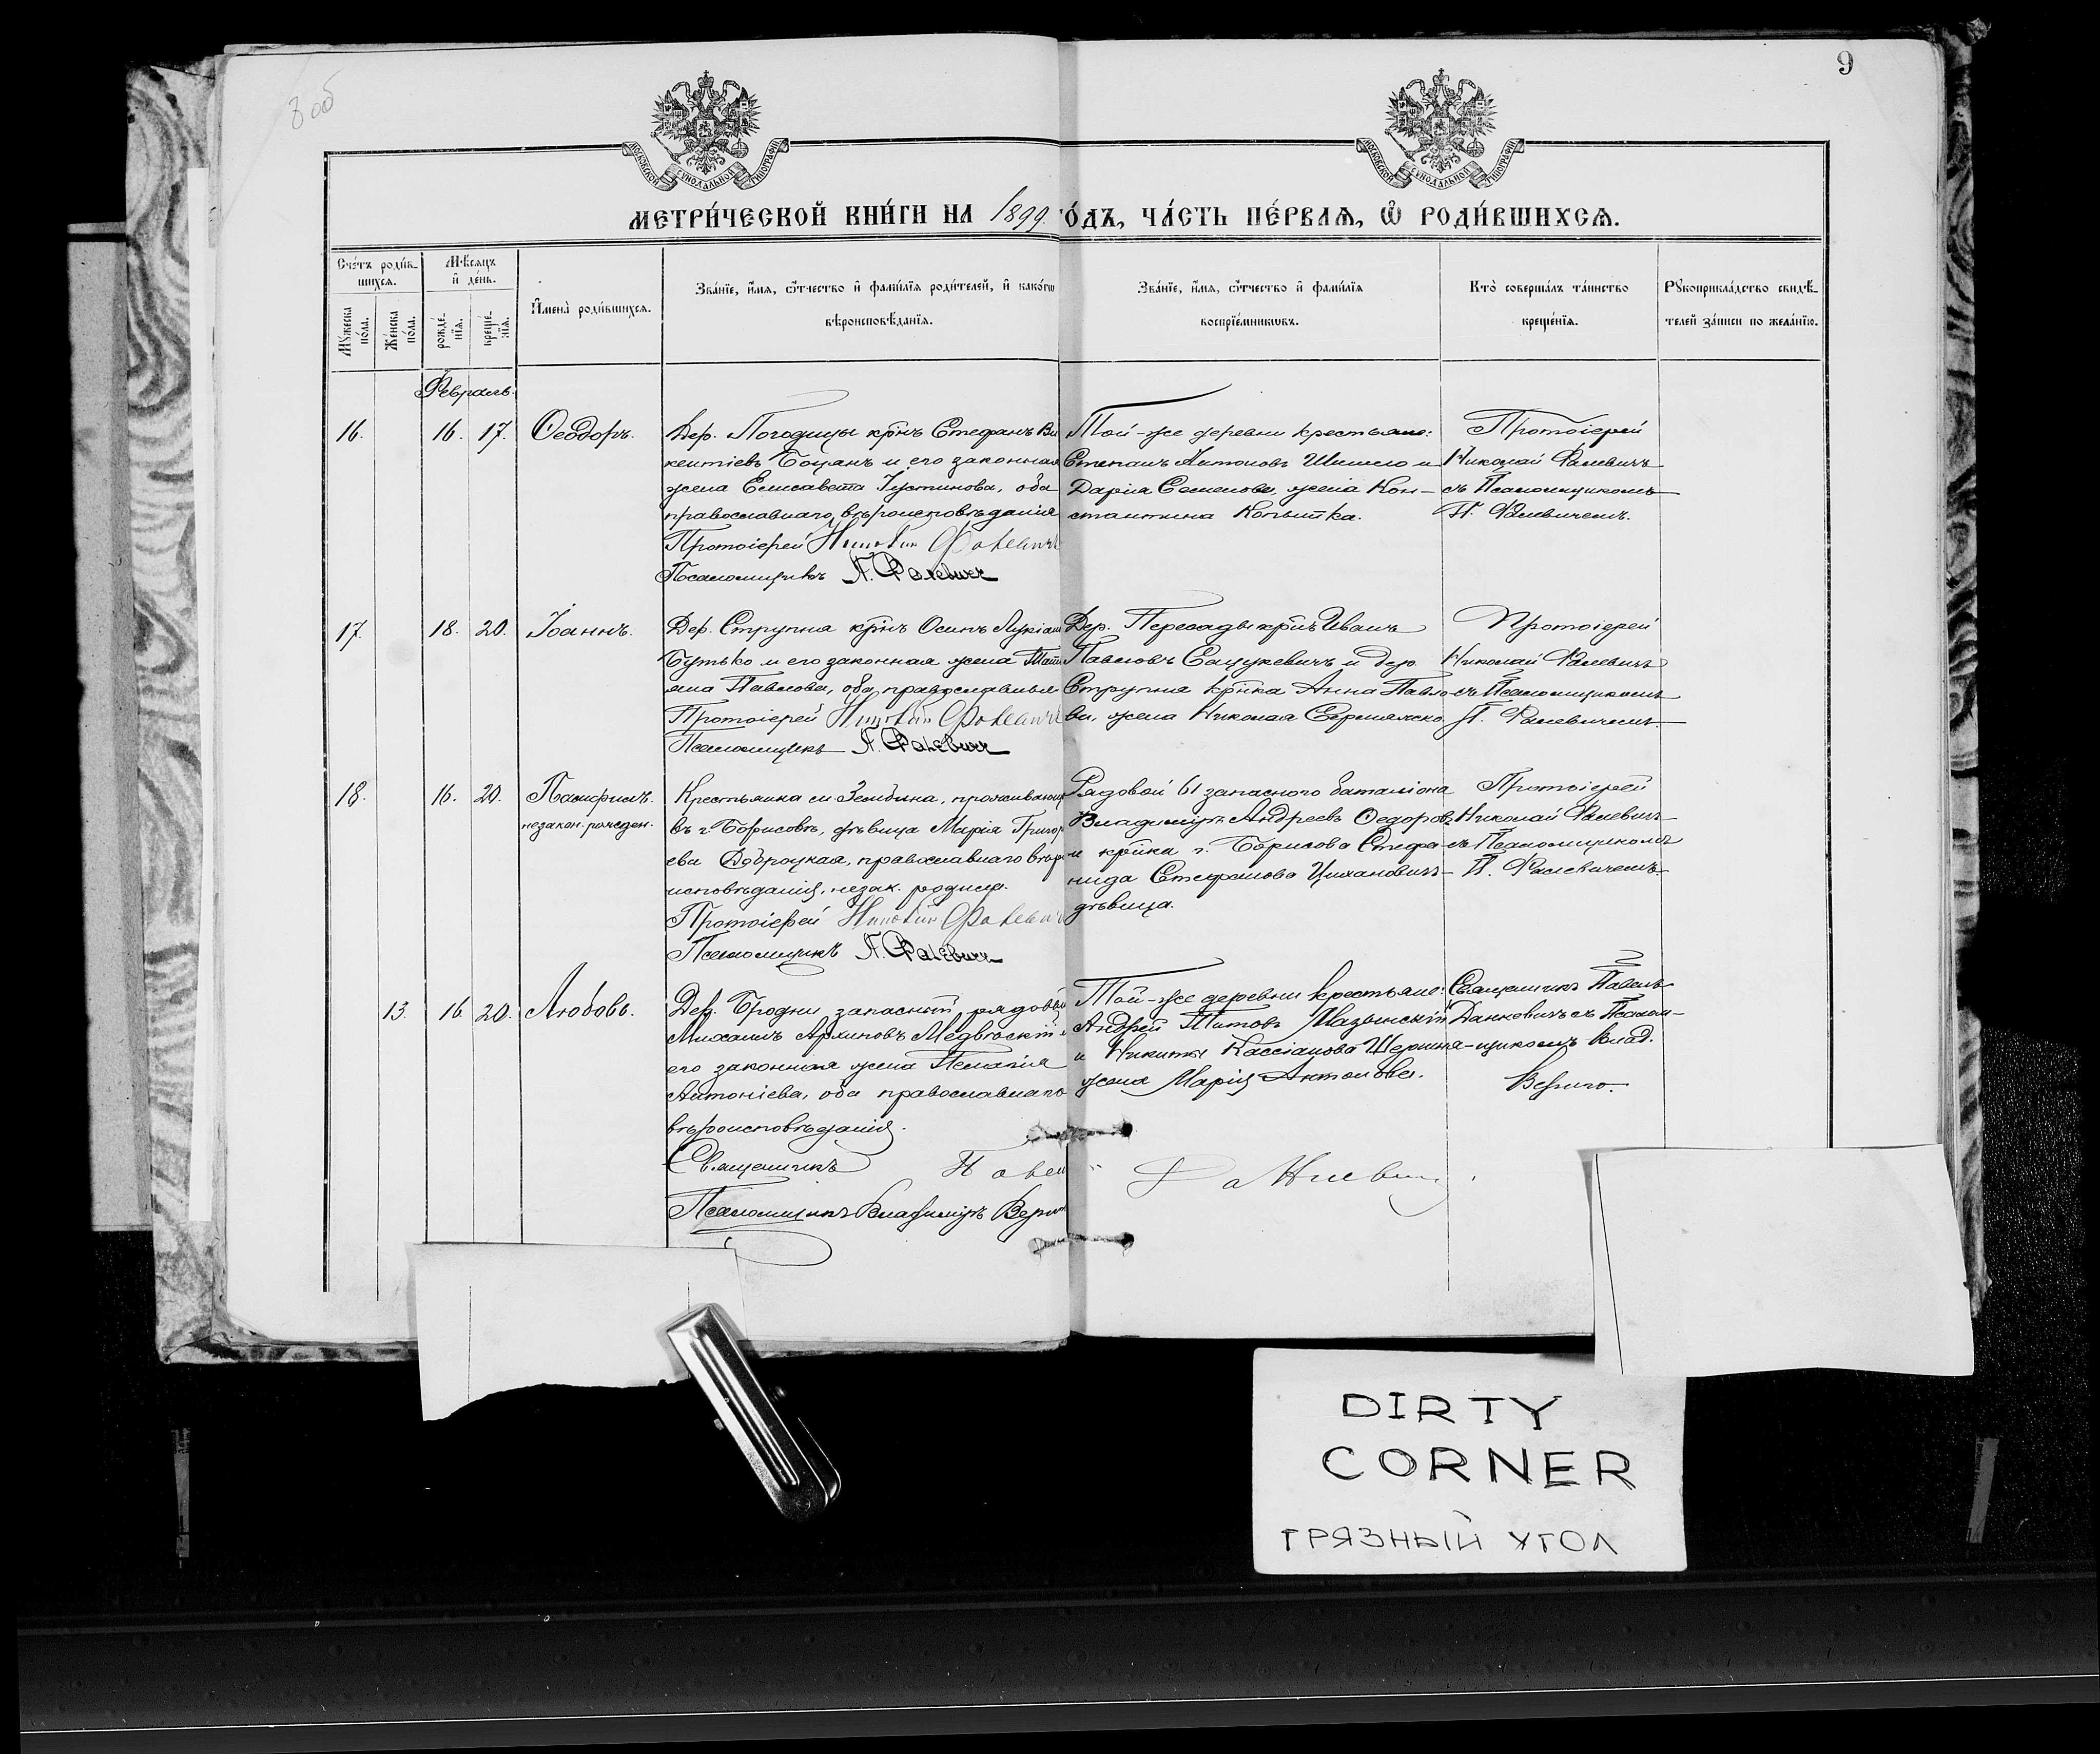 8 об
9
МОСКОВСКОЙ СУНОДАЛЬНОЙ ТИПОГРАФІИ
МОСКОВСКОЙ СУНОДАЛЬНОЙ ТИПОГРАФІИ
МЕТРИ́ЧЕСКОЙ КНИ́ГИ НА 1899 ГО́ДЪ, ЧА́СТЬ ПЕ́РВАѦ, Ѿ РОДИ́ВШИХСѦ.
Сче́тъ роди́в-
шихсѧ.
Мꙋжеска по́ла.
Же́нска по́ла.
Мѣ́сѧцъ и҆ де́нь.
рожде́-нїѧ.
креще́-нїѧ.
И҆мена̀ роди́вшихсѧ.
Зва́нїе, и҆́мѧ, ѻ҆́тчество и҆ фами́лїѧ роди́телей, и҆ како́гѡ
вѣроисповѣ́данїѧ.
Зва́нїе, и҆́мѧ, ѻ҆́тчество и҆ фами́лїѧ
воспрїе́мниковъ.
Кто̀ соверша́лъ та́инство
креще́нїѧ.
Рꙋкоприкла́дство свидѣ́-
телей за́писи по жела́нїю.
Февраль.
16. 16. 17. Ѳеодоръ.
Дер. Погодицы крнъ Стефанъ Ви
кентіевъ Боцанъ и его законная
жена Елисавета Іустинова, оба
православнаго вѣроисповѣданія
Протоіерей Николай Фалевичъ
Псаломщикъ П. Фалевичъ
Той-же деревни крестьяне:
Степанъ Антоновъ Шишло и
Дарія Семенова, жена Кон-
стантина Копытка.
Протоіерей
Николай Фалевичъ
съ Псаломщикомъ
П. Фалевичемъ.
17. 18. 20. Іоаннъ.
Дер. Струпня крнъ Осипъ Лукіан
Бутько и его законная жена Тать
яна Павлова, оба православные
Протоіерей Николай Фалевичъ
Псаломщикъ П. Фалевичъ
Дер. Пересады крнъ Иванъ
Павловъ Сацукевичъ и дер.
Струпня крнка Анна Павло-
ва, жена Николая
Протоіерей
Николай Фалевичъ
съ Псаломщикомъ
П. Фалевичемъ.
18. 16. 20. Памфилъ.
незакон. рожден.
Крестьянка м. Зембина, проживающ
въ г. Борисовѣ, дѣвица Марія Григор
ева Доброцкая, православнаго вѣро
исповѣданія, незак. родила.
Протоіерей Николай Фалевичъ
Псаломщикъ П. Фалевичъ
Рядовой 61 запаснаго баталіона
Владиміръ Андреевъ Ѳедоровъ
и крнка г. Борисова Стефа-
нида Стефанова Цихановичъ
дѣвица.
Протоіерей
Николай Фалевичъ
съ Псаломщикомъ
П. Фалевичемъ.
13. 16 20. Любовь.
Дер. Бродни запасный рядовый
Михаилъ Архиповъ Медвѣдскій и
его законная жена Пелагія
Антоніева, оба православнаго
вѣроисповѣданія.
Священникъ Павелъ Данкевичъ
Псаломщикъ Владиміръ Вериго
Той-же деревни крестьяне:
Андрей Титовъ Мазынскій
и Никиты Кассіанова Шершня
жена Марія Антонова.
Священникъ Павелъ
Данкевичъ съ Псалом-
щикомъ Влад.
Вериго.
DIRTY
CORNER
ГРЯЗНЫЙ УГОЛ